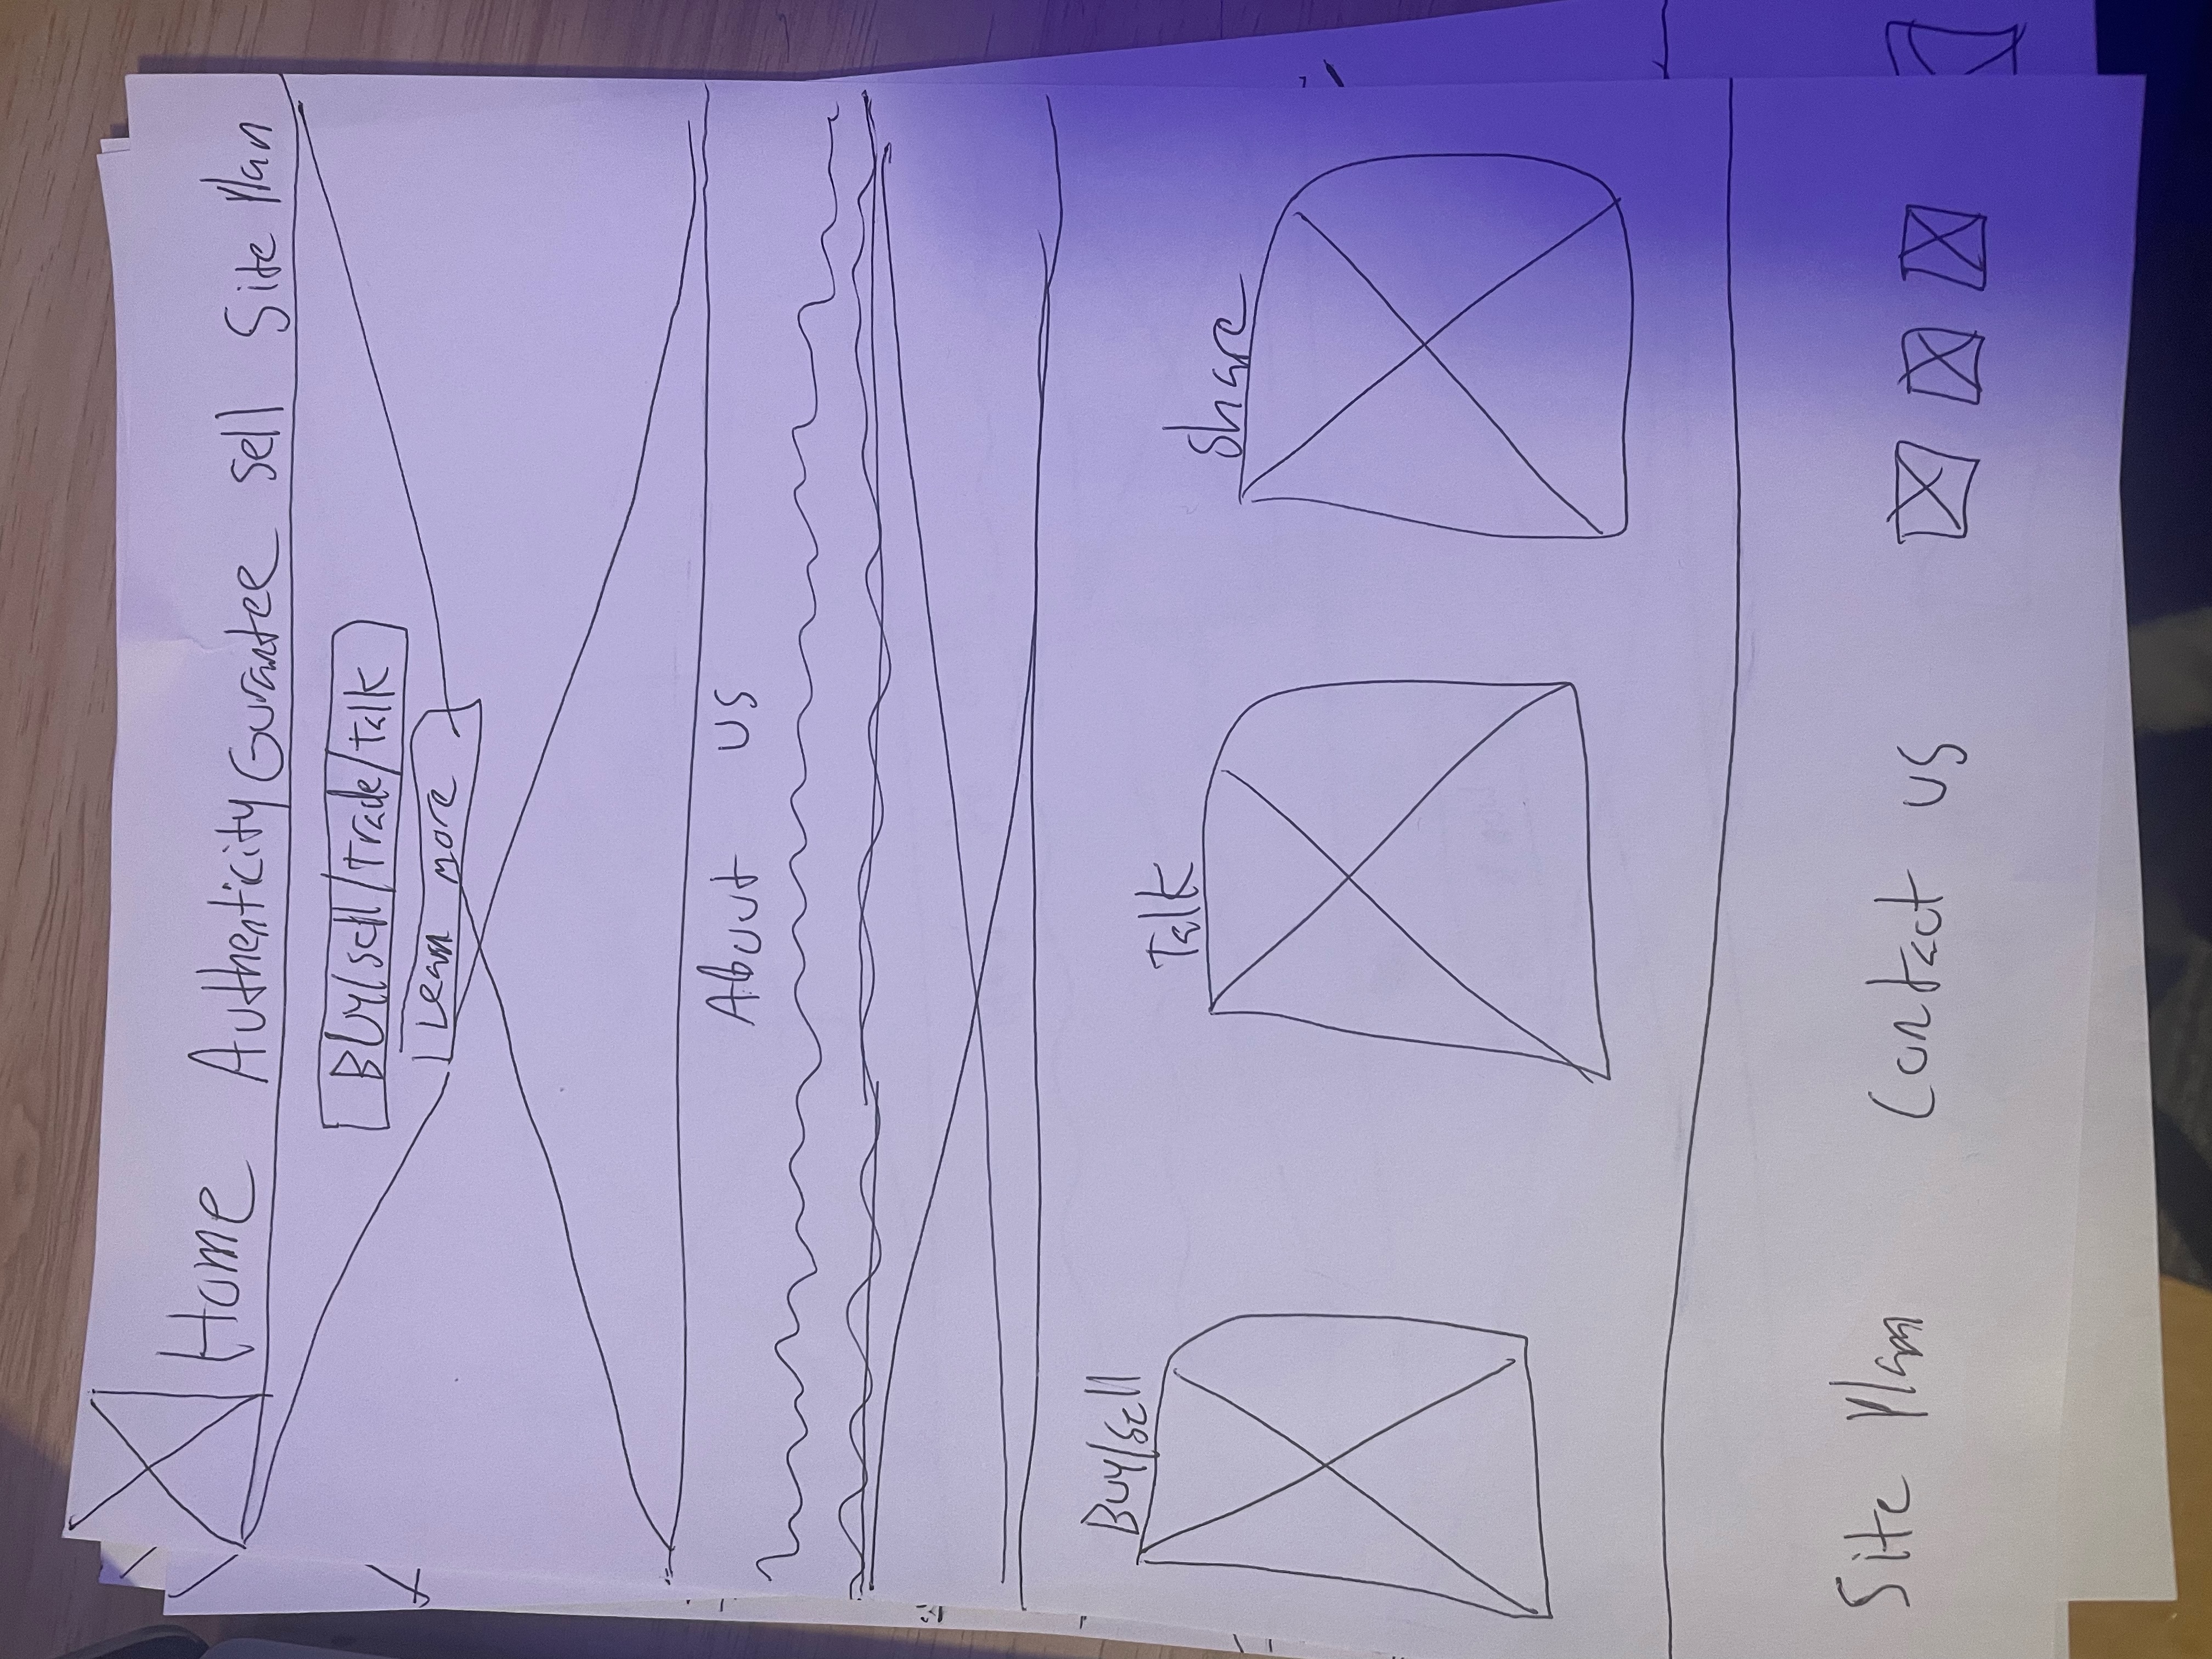 Home Authenticity Gurantee sell Site Plan
Buy/sell/Trade/talk
Learn more
About us
Buy/sell Talk Share
Site Plan Contact us